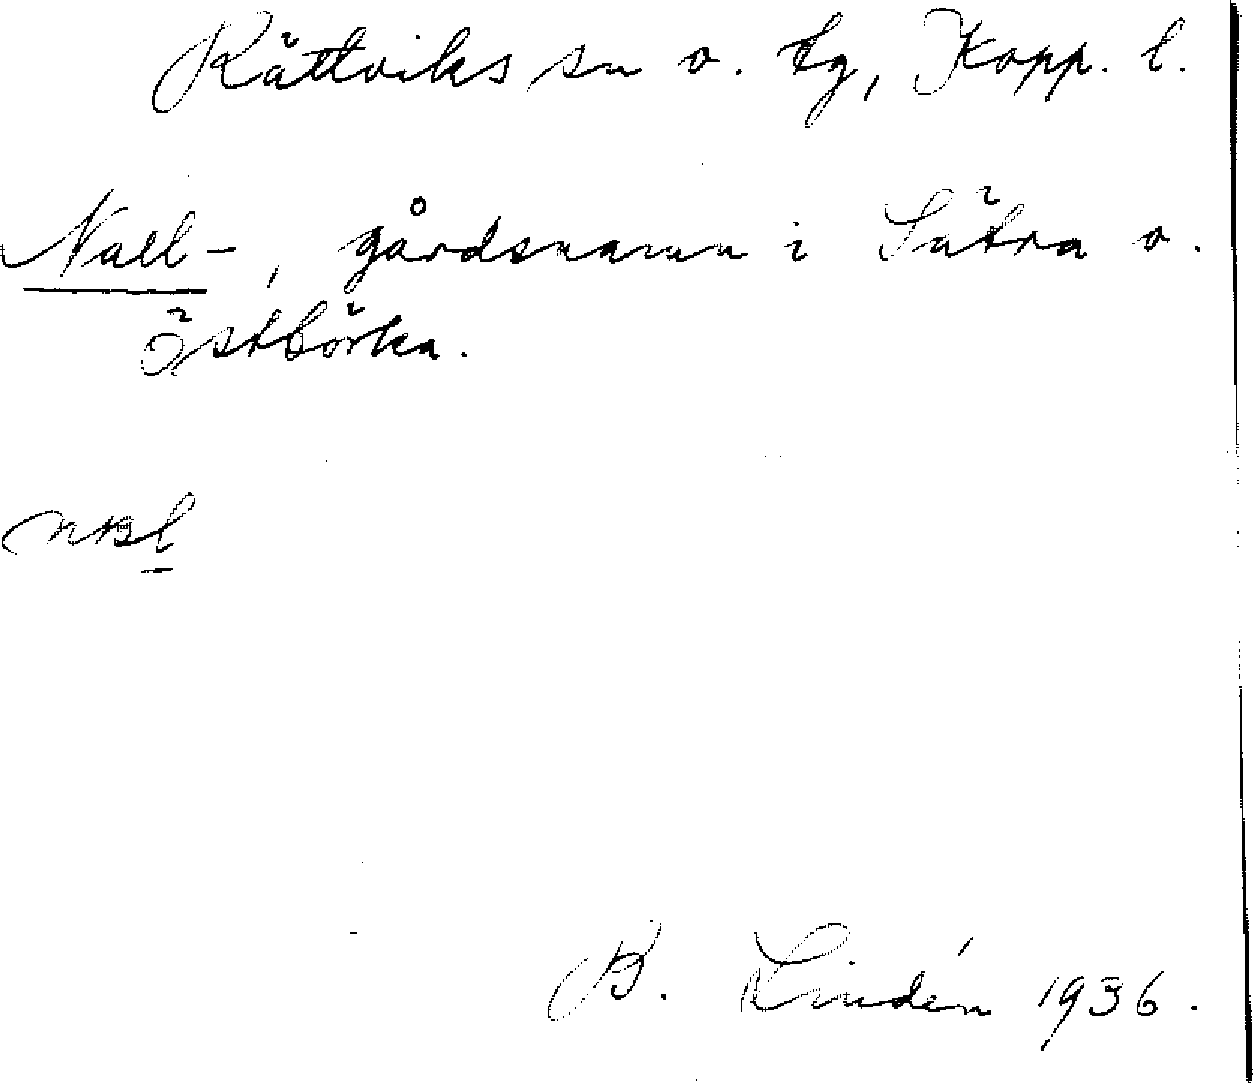 Rättviks sn o. tg, Kopp. l.
Nall-, gårdsnamn i Sätra o.
Östbörka.
B. Lindén 1936.